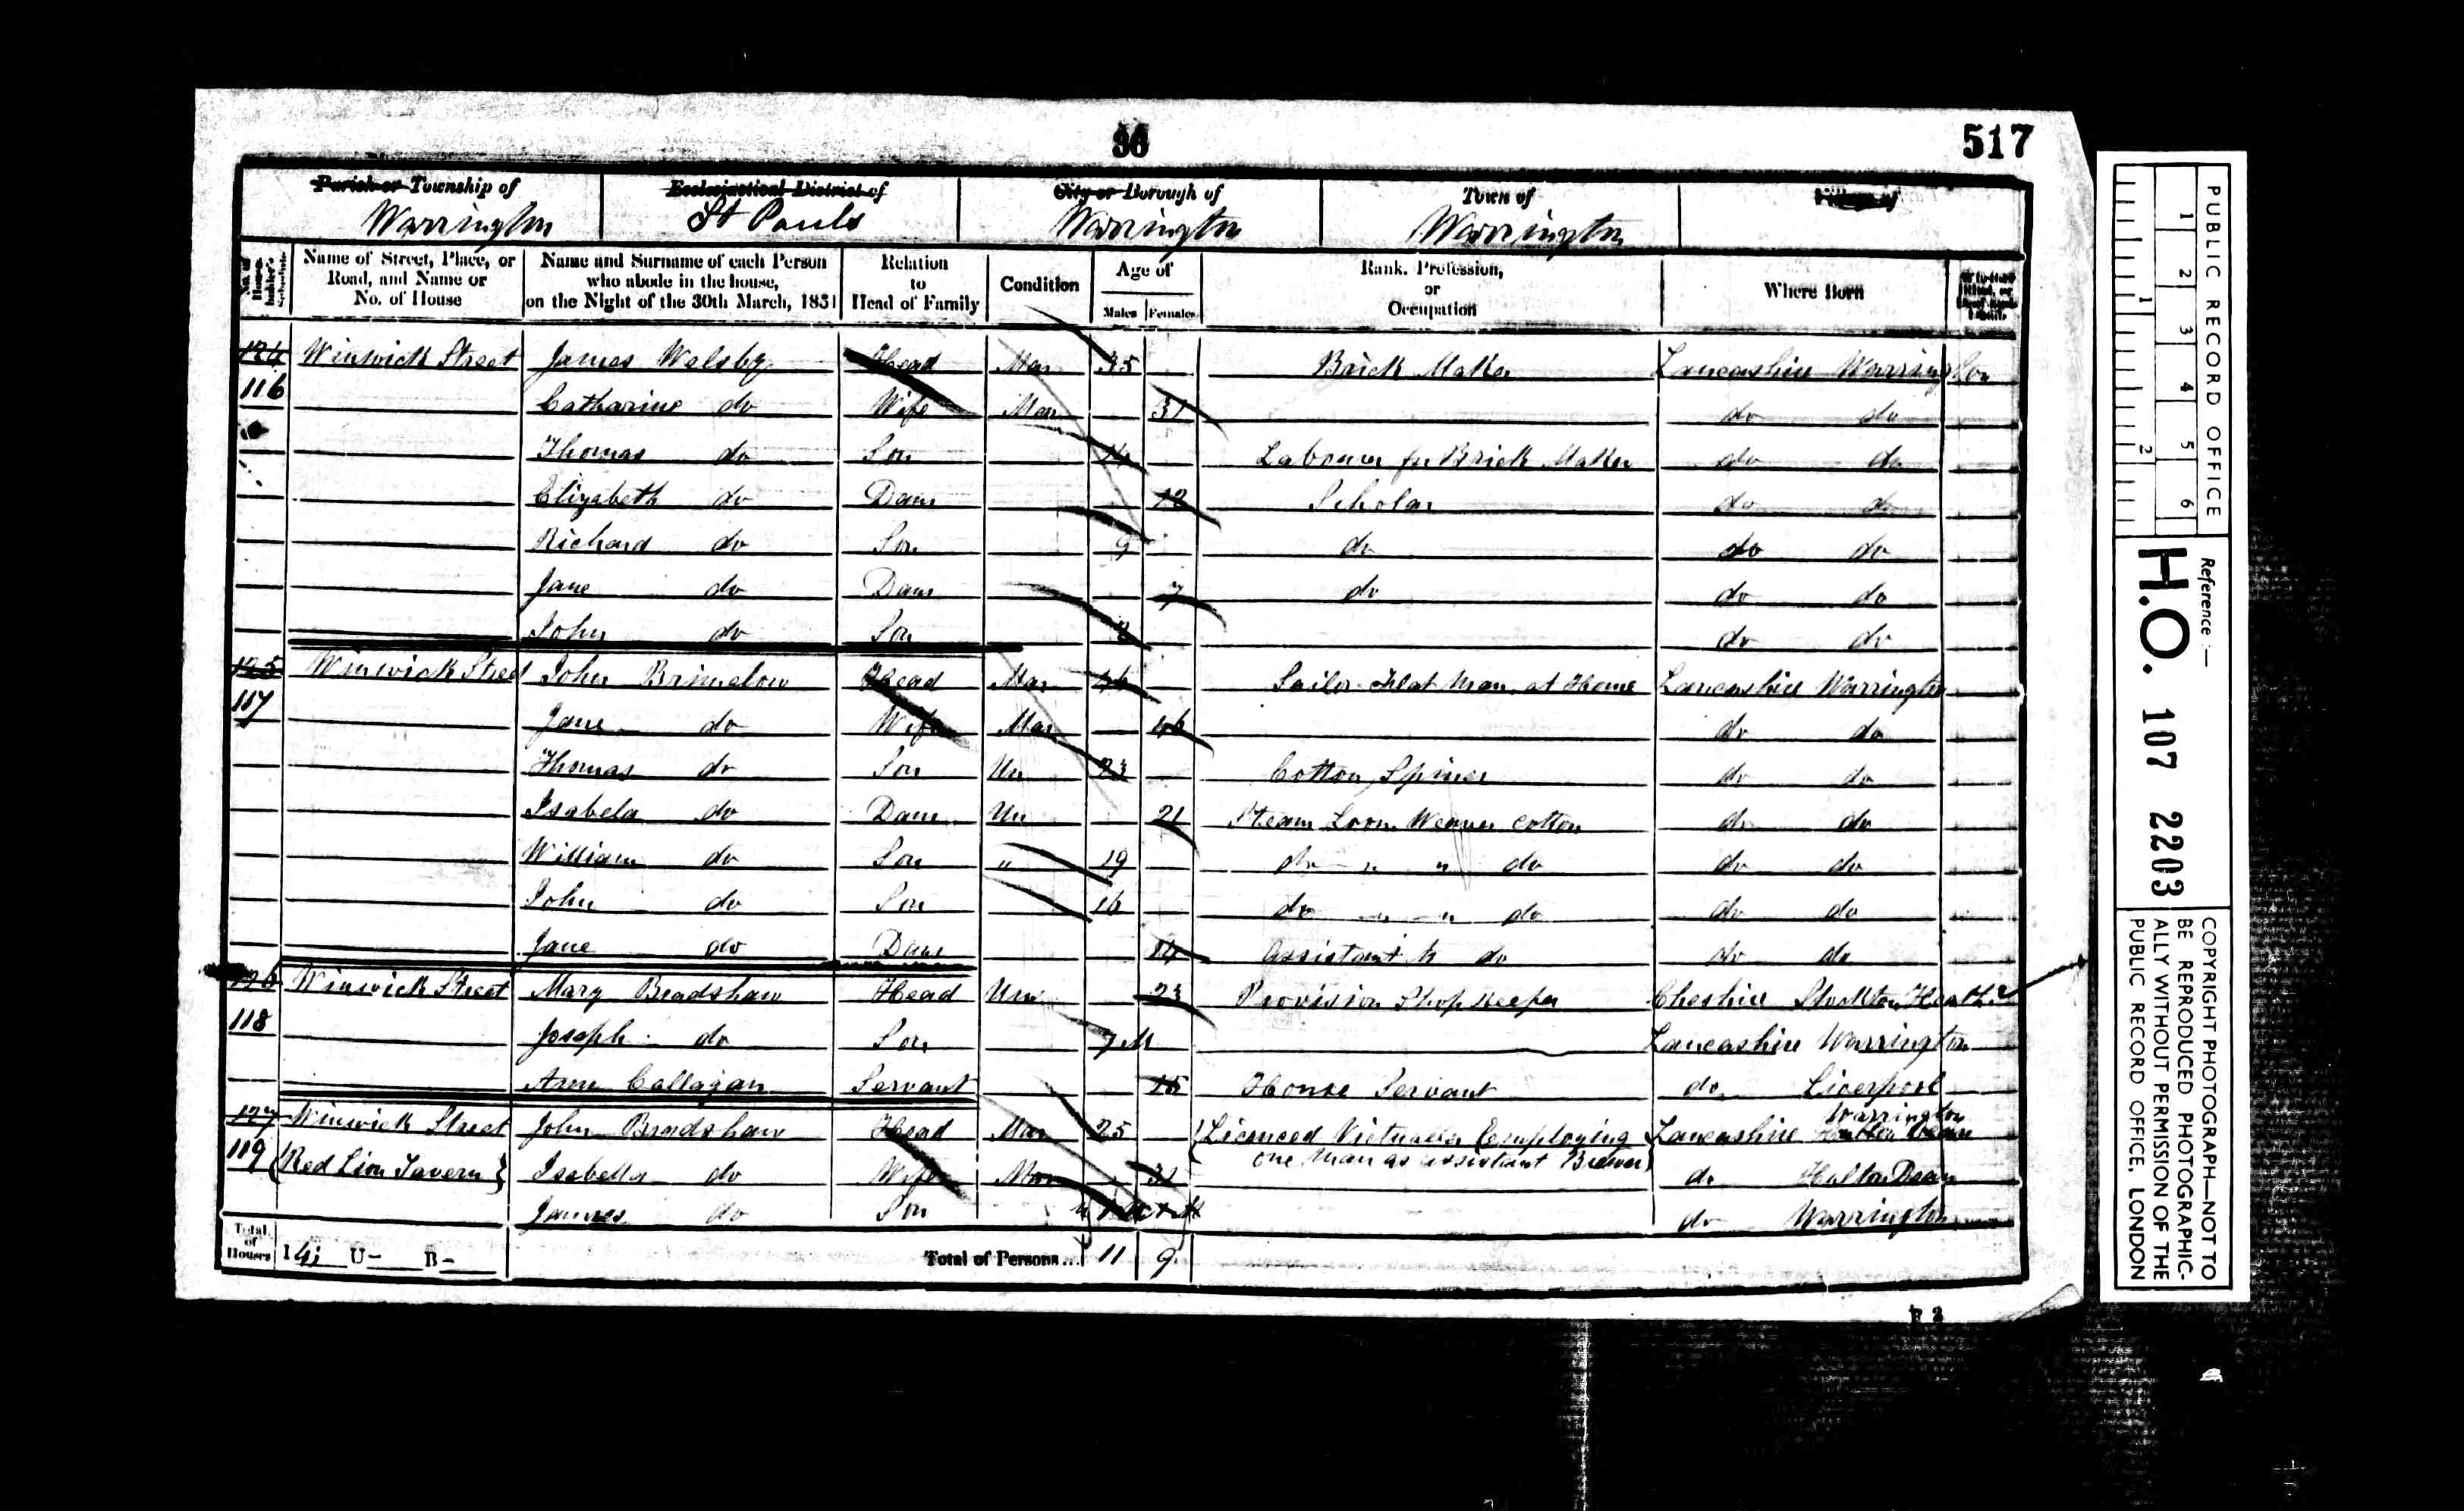 36
517
Parish or Township of
Warrington
Ecclesiastical District of
St Pauls
City or Borough of
Warrington
Town of
Warrington
Village of
Name of Street, Place, or Road, and Name or No. of House
Name and Surname of each Person who abode in the house, on the Night of the 30th March, 1851
Relation to Head of Family
Condition
Age of
Males Females
Rank, Profession, or Occupation
Where Born
124 Winwick Street James Welsby Head Mar 35 Brick Maker Lancashire Warrington
116
Catharine do Wife Mar 31 do do
Thomas do Son 14 Labourer for Brick Maker do do
Elizabeth do Daur 12 Scholar do do
Richard do Son 9 do do do
Jane do Daur 7 do do do
John do Son 2 do do
125 Winwick Street John Brimelow Head Mar 46 Sailor Flat Man at Home Lancashire Warrington
117
Jane do Wife Mar 46 do do
Thomas do Son Un 23 Cotton Spiner do do
Isabela do Daur Un 21 Steam Loom Weaver Cotton do do
William do Son " 19 do " " do do do
John do Son 16 do " " do do do
Jane do Daur 14 Assistant to do do do
126 Winwick Street Mary Bradshaw Head Un 23 Provision Shop Keeper Cheshire Stockton Heath
118
Joseph do Son 7 M Lancashire Warrington
Ann Callagan Servant 15 House Servant do Liverpool
127 Winwick Street John Bradshaw Head Mar 25 Licenced Victualler Employing Lancashire Warrington
one man as assistant Brewer
119 Red Lion Tavern Isabella do Wife Mar 31 do Halton Dean
James do Son do Warrington
Total of Houses I 4 U - B -
Total of Persons... 11 9
F 2
PUBLIC RECORD OFFICE
1 2 3 4 5 6
1 2
Reference :—
H.O. 107 2203
COPYRIGHT PHOTOGRAPH—NOT TO
BE REPRODUCED PHOTOGRAPHIC-
ALLY WITHOUT PERMISSION OF THE
PUBLIC RECORD OFFICE, LONDON